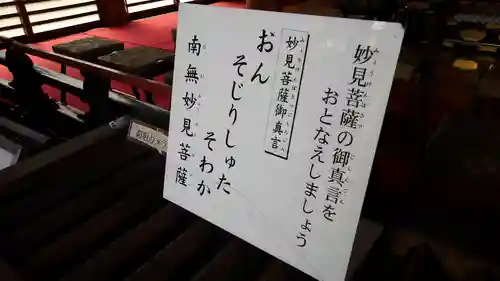 妙見菩薩の御真言を
おとなえしましょう
妙見菩薩御真言
おん
そじりしゅた
そわか
南無妙見菩薩